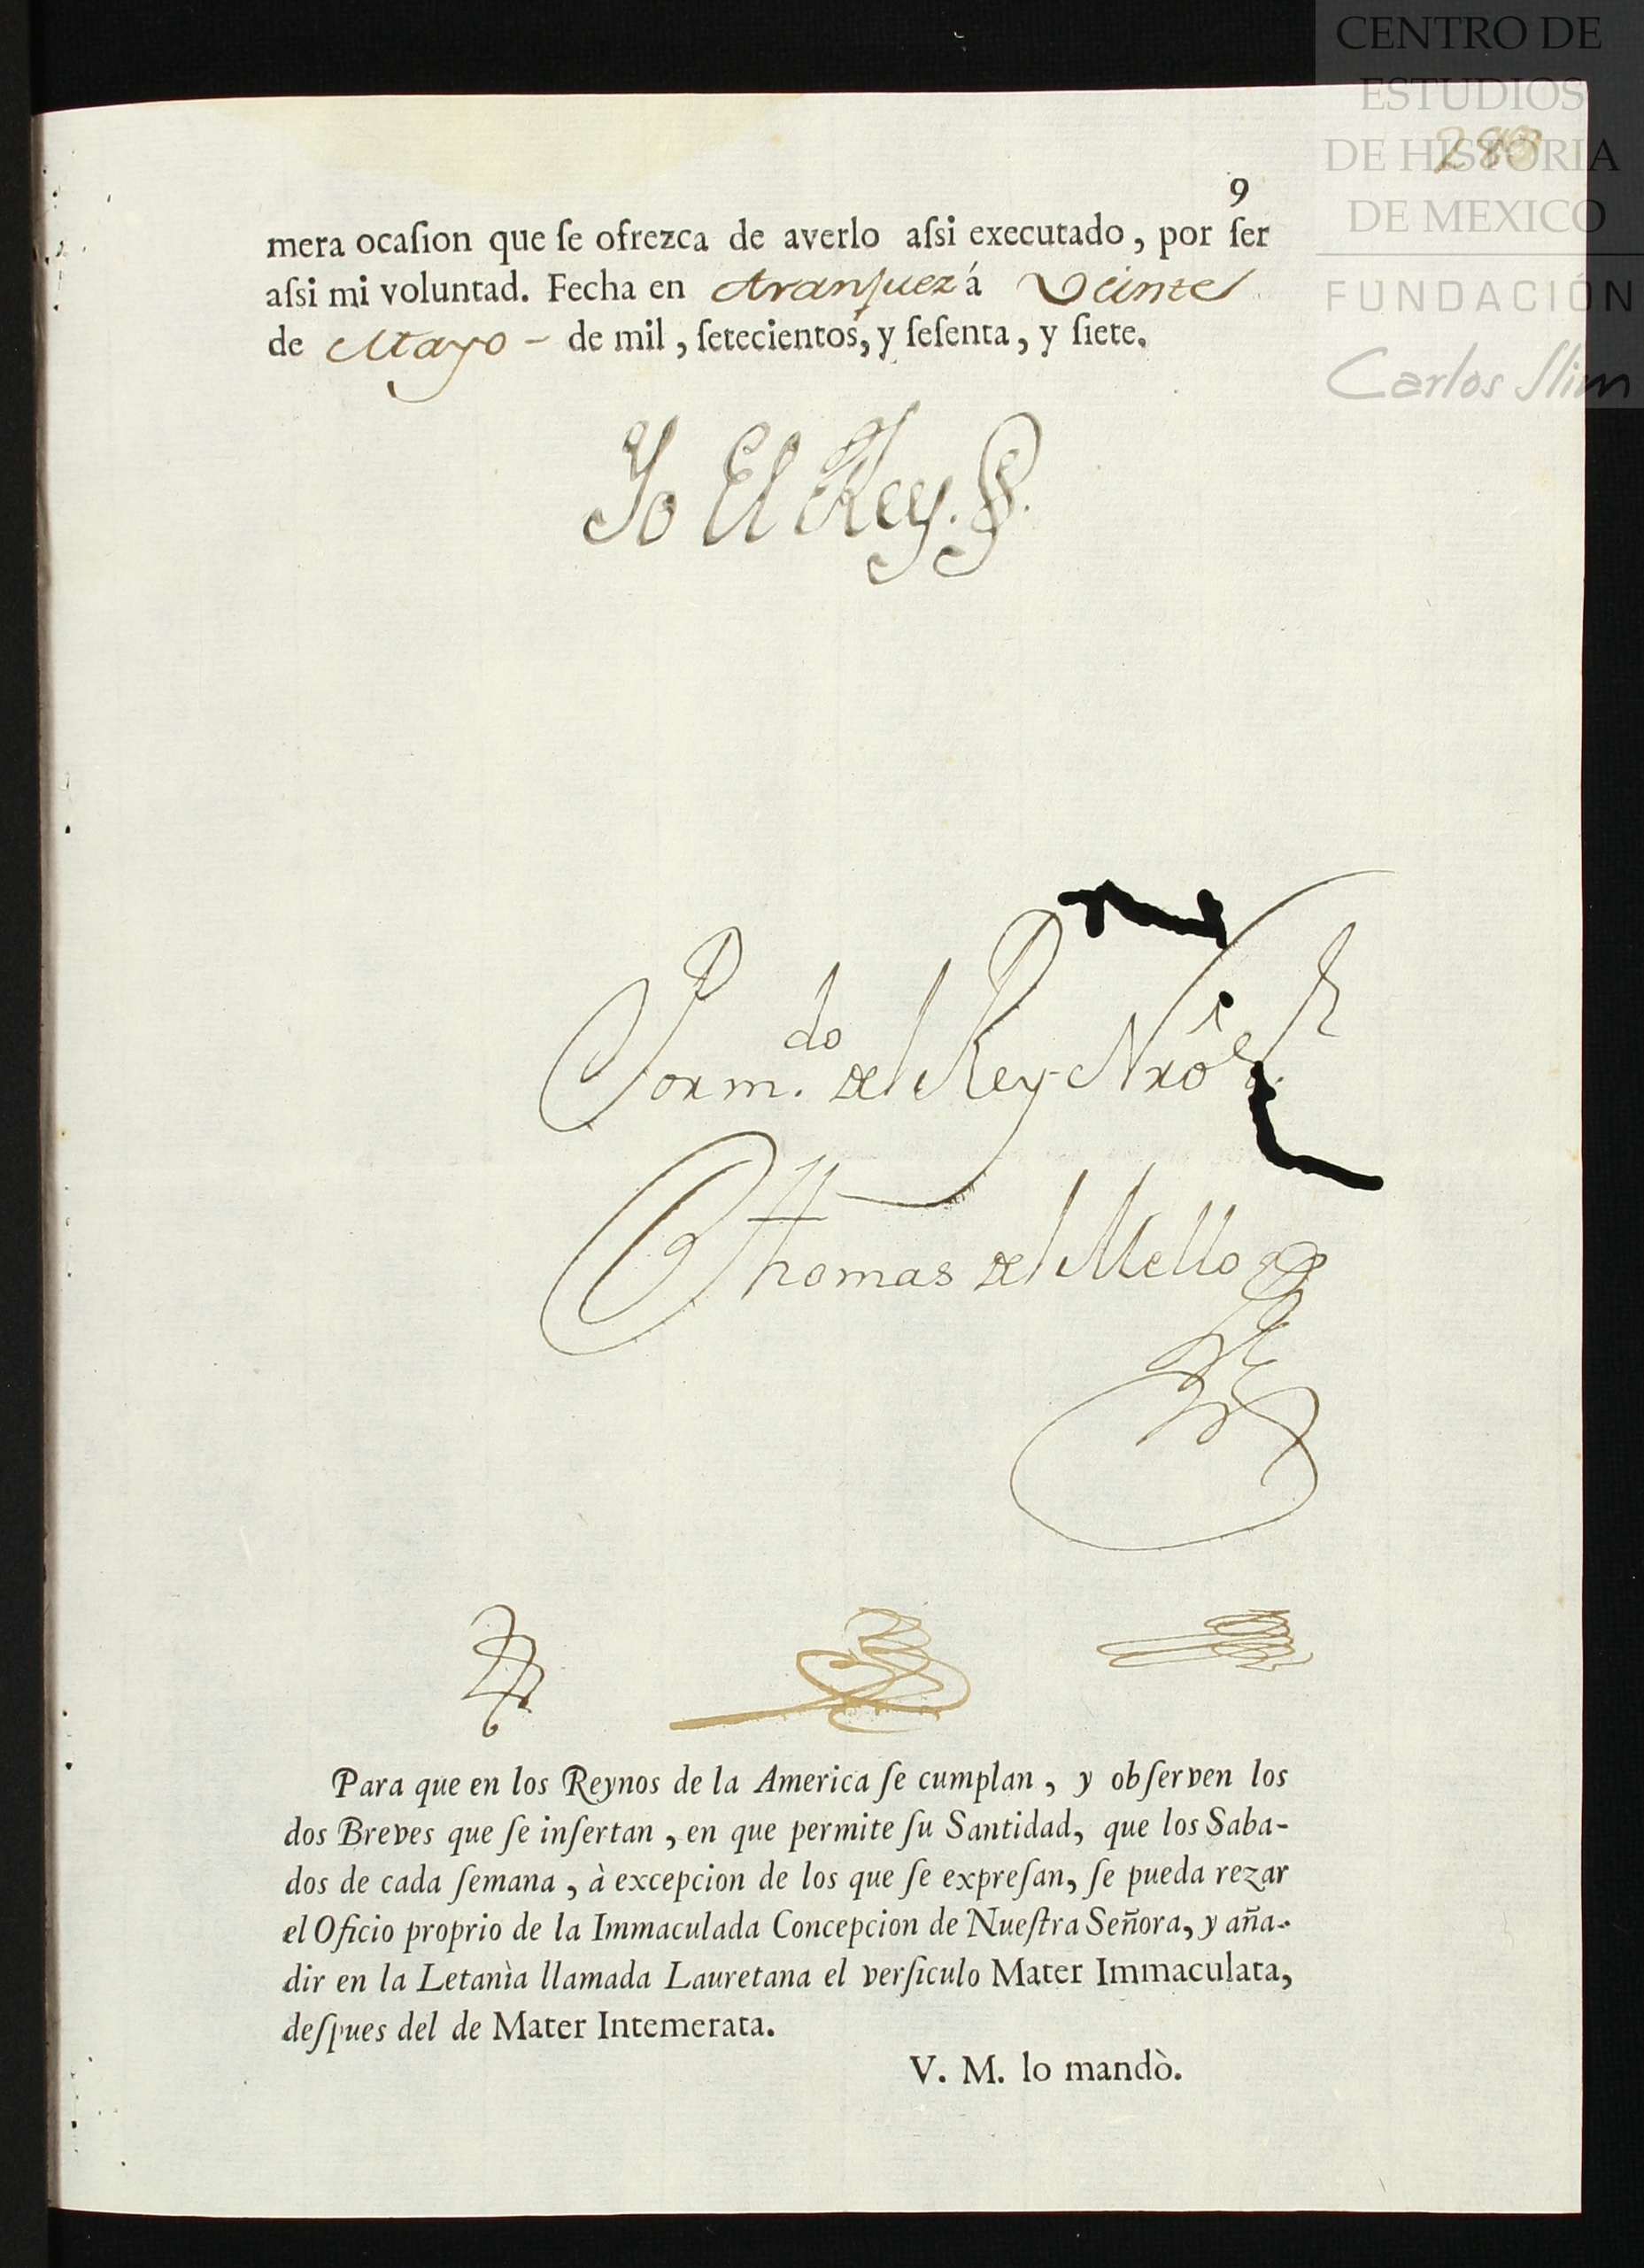 CENTRO DE
ESTUDIOS
DE HISTORIA
DE MEXICO
FUNDACIÓN
Carlos Slim
9
mera ocaſion que ſe ofrezca de averlo aſsi executado, por ſer
aſsi mi voluntad. Fecha en Aranjuez á Veinte
de Mayo - de mil, ſetecientos, y ſeſenta, y ſiete.
Yo El Rey.
Por m.do del Rey Nrô S.r
Thomas del Mello
Para que en los Reynos de la America ſe cumplan, y obſerven los
dos Breves que ſe inſertan, en que permite ſu Santidad, que los Saba-
dos de cada ſemana, à excepcion de los que ſe expreſan, ſe pueda rezar
el Oficio proprio de la Immaculada Concepcion de Nueſtra Señora, y aña-
dir en la Letanìa llamada Lauretana el verſiculo Mater Immaculata,
deſpues del de Mater Intemerata.
V. M. lo mandò.